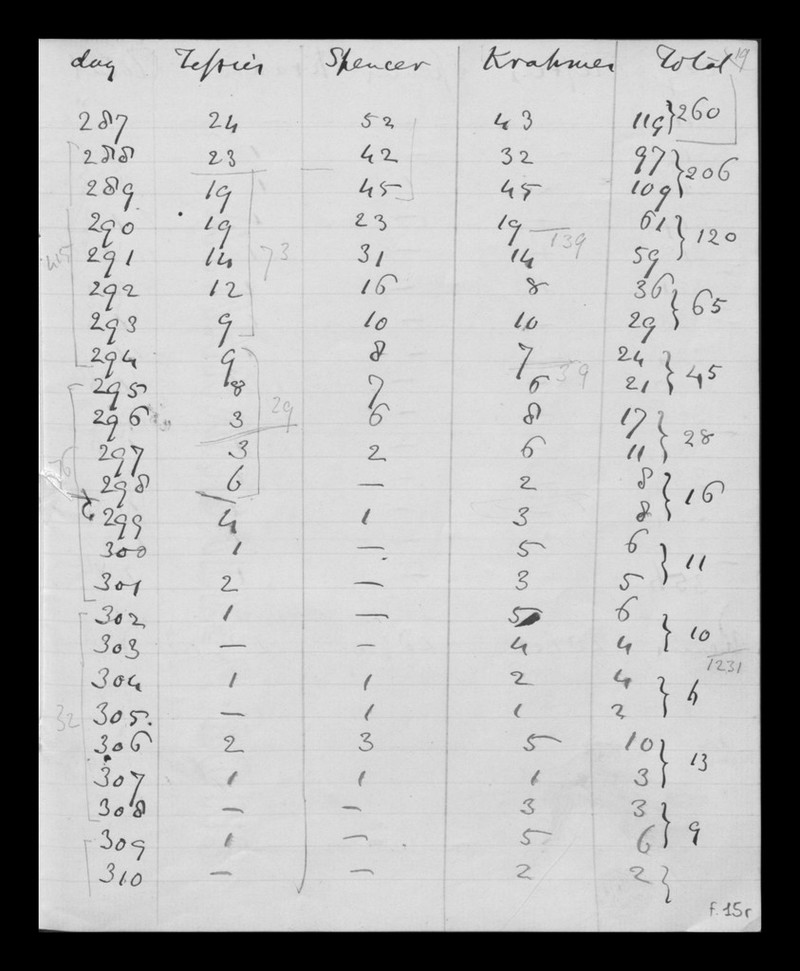 day Tessier Spencer Krahmer Total 19
287 24 52 43 119 } 260
288 23 42 32 97 } 206
289 19 45 45 109
290 19 23 19 61 } 120
139
291 14 31 14 59
73
292 12 16 8 36 } 65
293 9 10 10 29
294 9 8 7 24 } 45
39
295 8 7 6 21
29
296 3 6 8 17 } 28
297 3 2 6 11
298 6 — 2 8 } 16
299 4 1 3 8
300 1 — 5 6 } 11
301 2 — 3 5
302 1 — 5 6 } 10
303 — — 4 4
1231
304 1 1 2 4 }
32 305. — 1 1 2
306 2 3 5 10 } 13
307 1 1 1 3
308 — — 3 3 } 9
309 1 — 5 6
310 — — 2 2 }
f. 15r